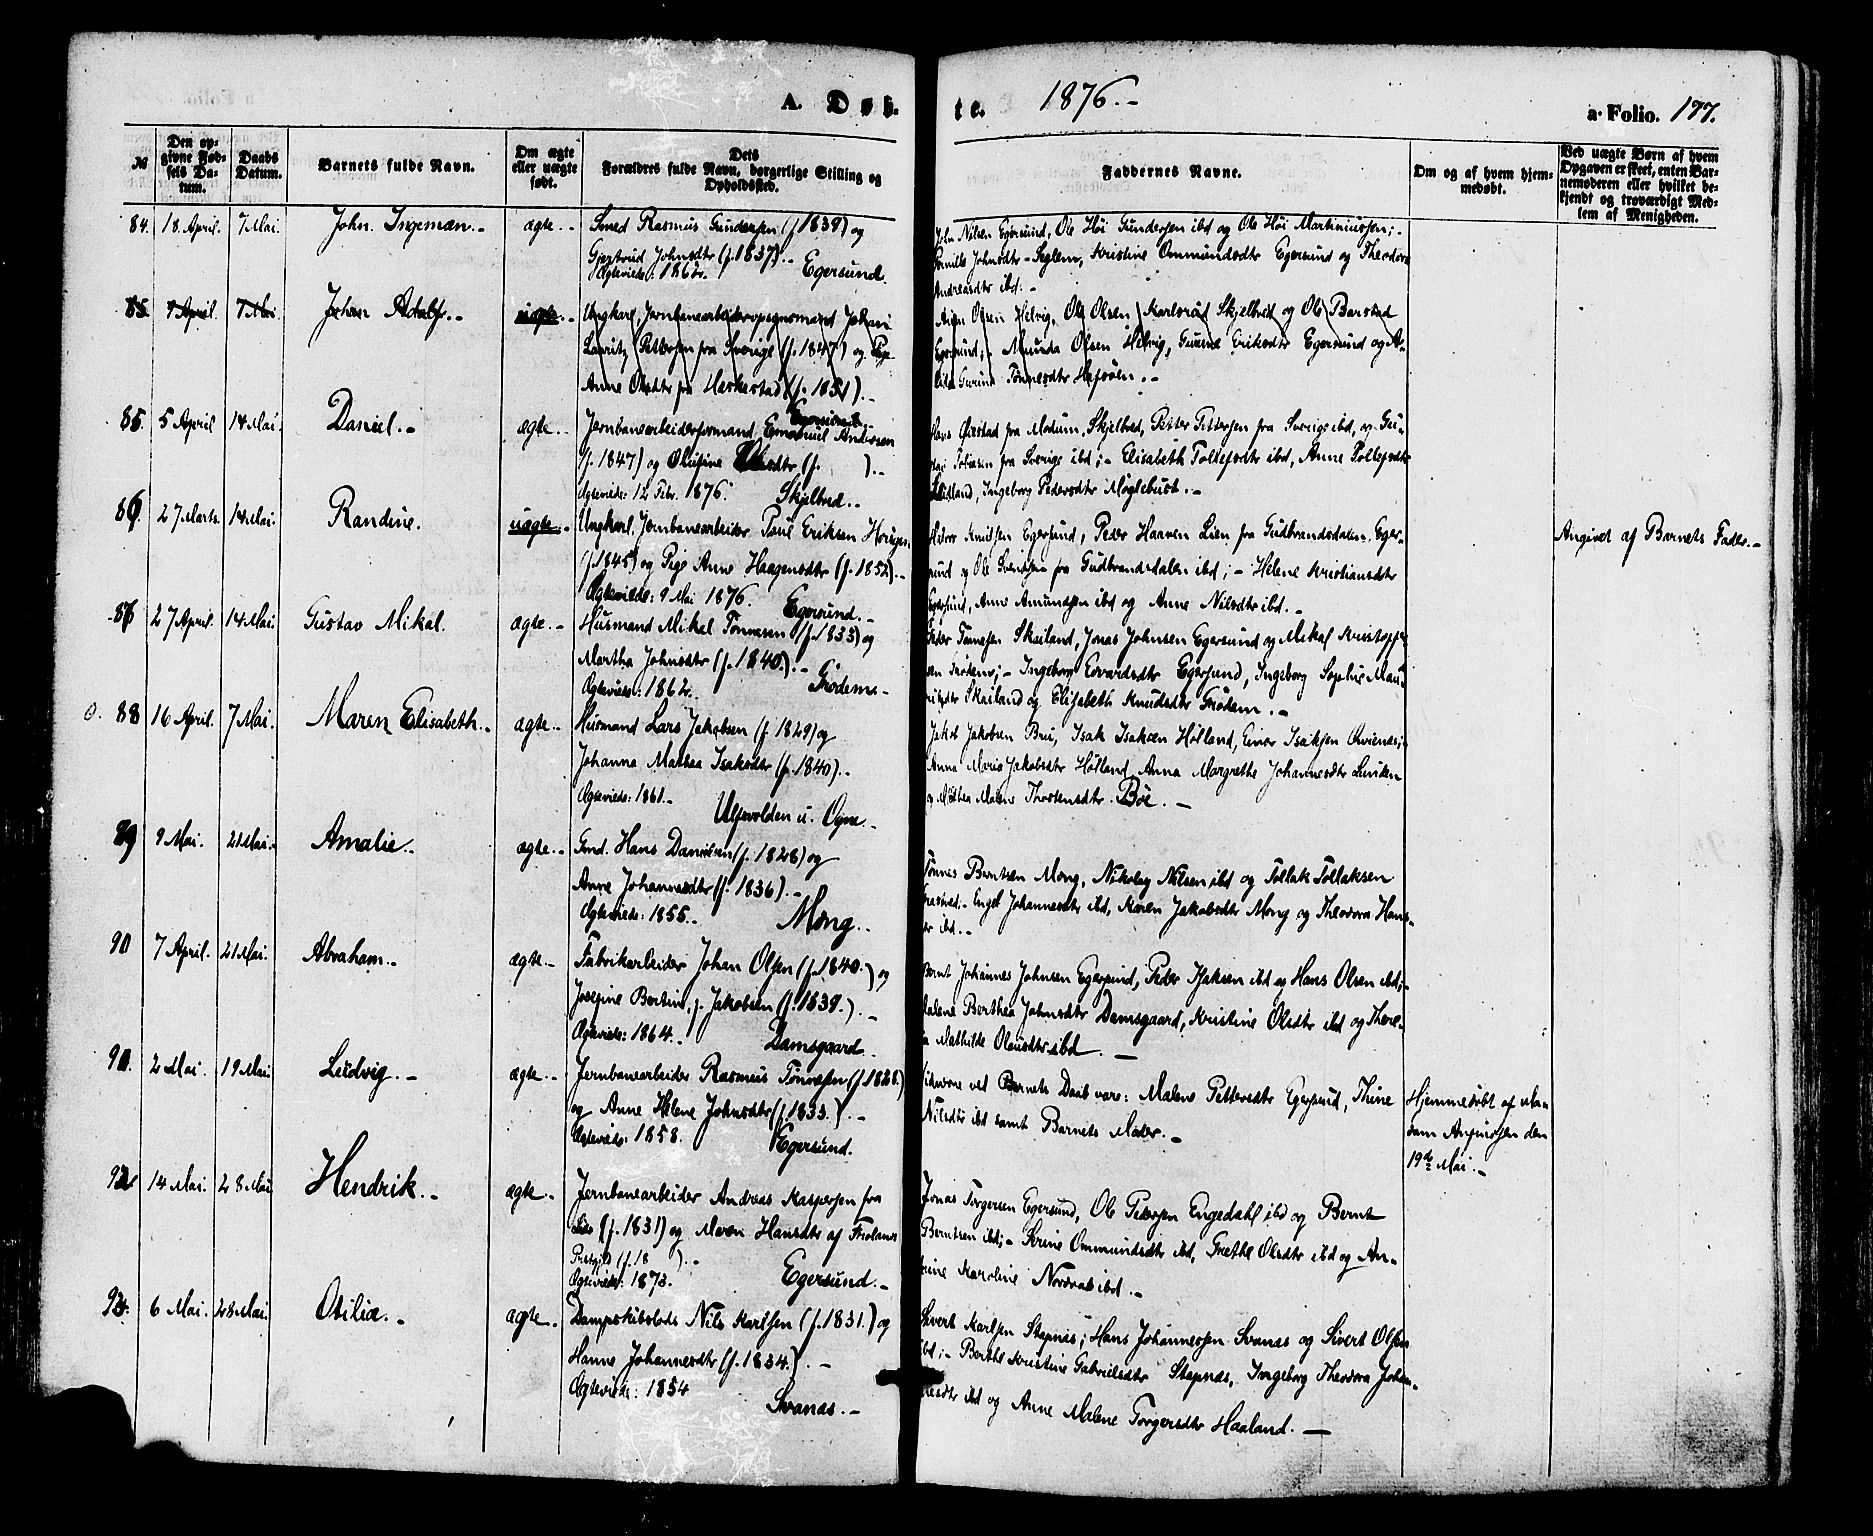 A. Døb-
te. 1876.-
a. Folio. 177.
№
Den op-
givne Fød-
sels Da-
tum.
Daabs
Datum.
Barnets fulde Navn.
Om ægte
eller uægte
født.
Dets
Forældres fulde Navn, borgerlige Stilling og
Opholdssted.
Faddernes Navne.
Om og af hvem hjem-
medøbt.
Ved uægte Børn af hvem
Opgaven er skeet, enten Bar-
nemoderen eller hvilket be-
kjendt og troværdigt Med-
lem af Menigheden.
84. 18. April. 7 Mai. John Ingeman.- ægte.- Smed Rasmus Gundersen (f. 1839) og
Gjertrud Johnsdtr (f. 1837).-
Ægteviede: 1862. Egersund.
John Nilsen Egersund, Ole Høi Gundersen ibd og Ole Høi Martiniussen;-
Pernille Johnsdtr Seglem, Kristine Ommundsdtr Egersund og Theodora
Andreasdtr ibd.-
85. 9 April. 7 Mai. Johan Adolf.- uægte.- Ungkarl, Jernbanearbeider Johan
Lauritz Pettersen fra Sverige (f. 1847) og Pige
Anne Olsdtr fra Heskestad (f. 1851).-
Egersund.
Olsen Helvig, Ole Olsen Skjelbred og Ole Barstad
Egersund;- Amunda Olsen Helvig, Gurine Eriksdtr Egersund og
Gurine Tønnesdtr Hafsøen.-
85. 5 April 14 Mai. Daniel.- ægte.- Jernbanearbeiderformand Emanuel Andersen
(f. 1847) og Olufine dtr (f. ).-
Ægteviede: 12 Febr. 1876. Skjelbred.-
Hans Øxstad fra Modum, Skjelbred, Petter Pettersen fra Sverige ibd, og Gu-
fra Sverige ibd;- Elisabeth Tollefsdtr ibd, Anne Tollefsdtr
Ingeborg Pedersdtr Møglebust.-
86. 27 Marts. 14 Mai. Randine. uægte.- Ungkarl, Jernbanearbeider Paul Eriksen
(f. 1845) og Pige Anne Haagensdtr (f. 1852).-
Ægteviede: 9 Mai 1876. Egersund.-
Knutsen Egersund, Peder Haaven Lien fra Gudbrandsdalen, Eger-
sund og Ole Svensen fra Gudbrandsdalen ibd;- Helene Kristiansdtr
Egersund, Anne Amundsen ibd og Anne Nilsdtr ibd.-
Angivet af Barnets Fader.-
87. 27 April. 14 Mai. Gustav Mikal. ægte.- Husmand Mikal Tønnesen (f. 1833) og
Martha Johnsdtr (f. 1840).-
Ægteviede: 1862. Grødem.-
Peder Tønnesen Skailand, Jonas Johnsen Egersund og Mikal Kristoffer-
sen Grødem;- Ingeborg Edvardsdtr Egersund, Ingeborg Sophie Mau-
ritzdtr Skailand og Elisabeth Knudsdtr Grødem.-
o. 88 16 April. 7 Mai. Maren Elisabeth.- ægte.- Husmand Lars Jakobsen (f. 1829) og
Johanna Mathea Isaksdtr (f. 1840).-
Ægteviede: 1861.- Ulfsvolden u. Ogne.-
Jakob Jakobsen Bru, Isak Isaksen Hølland, Einar Isaksen
Anna Maria Jakobsdtr Hølland, Anna Margrethe Johannesdtr
og Mathea Malene Thorstensdtr Bøe.-
89 9 Mai. 21 Mai. Amalie.- ægte.- Gmd. Hans Danielsen (f. 1828) og
Anne Johannesdtr (f. 1836).-
Ægteviede: 1855.- Mong.-
Tønnes Berntsen Mong, Nikolay Nilsen ibd og Tollak Tollaksen
Engel Johannesdtr ibd, Karen Jakobsdtr Mong og Theodora Hans-
dtr ibd.-
90 7 April. 21 Mai. Abraham.- ægte.- Fabrikarbeider Johan Olsen (f. 1840.) og
Josefine Bertine f. Jakobsen (f. 1839.).-
Ægteviede: 1864.- Damsgaard.
Bernt Johannes Johnsen Egersund, Peder Isaksen ibd og Hans Olsen ibd;-
Malene Berthea Johnsdtr Damsgaard, Kristine Olsdtr ibd og There-
sia Mathilde Olausdtr ibd.-
91. 2 Mai. 19 Mai Ludvig.- ægte.- Jernbanearbeider Rasmus Tønnesen (f. 1828.)
og Anne Helene Johnsdtr (f. 1833.).-
Ægteviede: 1858. Egersund.
Vidnerne ved Barnets Daab vare: Malene Pettersdtr Egersund, Thine
Nilsdtr ibd samt Barnets Moder.-
Hjemmedøbt af Ma-
dam den
19de Mai.-
92 14 Mai. 28 Mai Hendrik.- ægte.- Jernbanearbeider Andreas Kaspersen fra
(f. 1831) og Maren Hansdtr af Frolands
Præstgjld (f. 18 ).-
Ægteviede: 1873. Egersund.-
Jonas Torgersen Egersund, Ole Petersen Engedahl ibd og Bernt
Berntsen ibd;- Serine Ommundsdtr ibd, Grethe Olsdtr ibd og An-
Karoline ibd.-
93. 6 Mai. 28 Mai. Otilie.- ægte.- Dampskibslods Nils Karlsen (f. 1831.) og
Hanne Johannesdtr (f. 1834.).-
Ægteviede: 1854 Svanæs.-
Sivert Karlsen Stapnæs, Hans Johannessen Svanæs og Sivert Olsen
ibd;- Berthe Kristine Gabrielsdtr Stapnæs, Ingeborg Theodora Johan-
nesdtr ibd og Anne Malene Torgersdtr Haaland.-